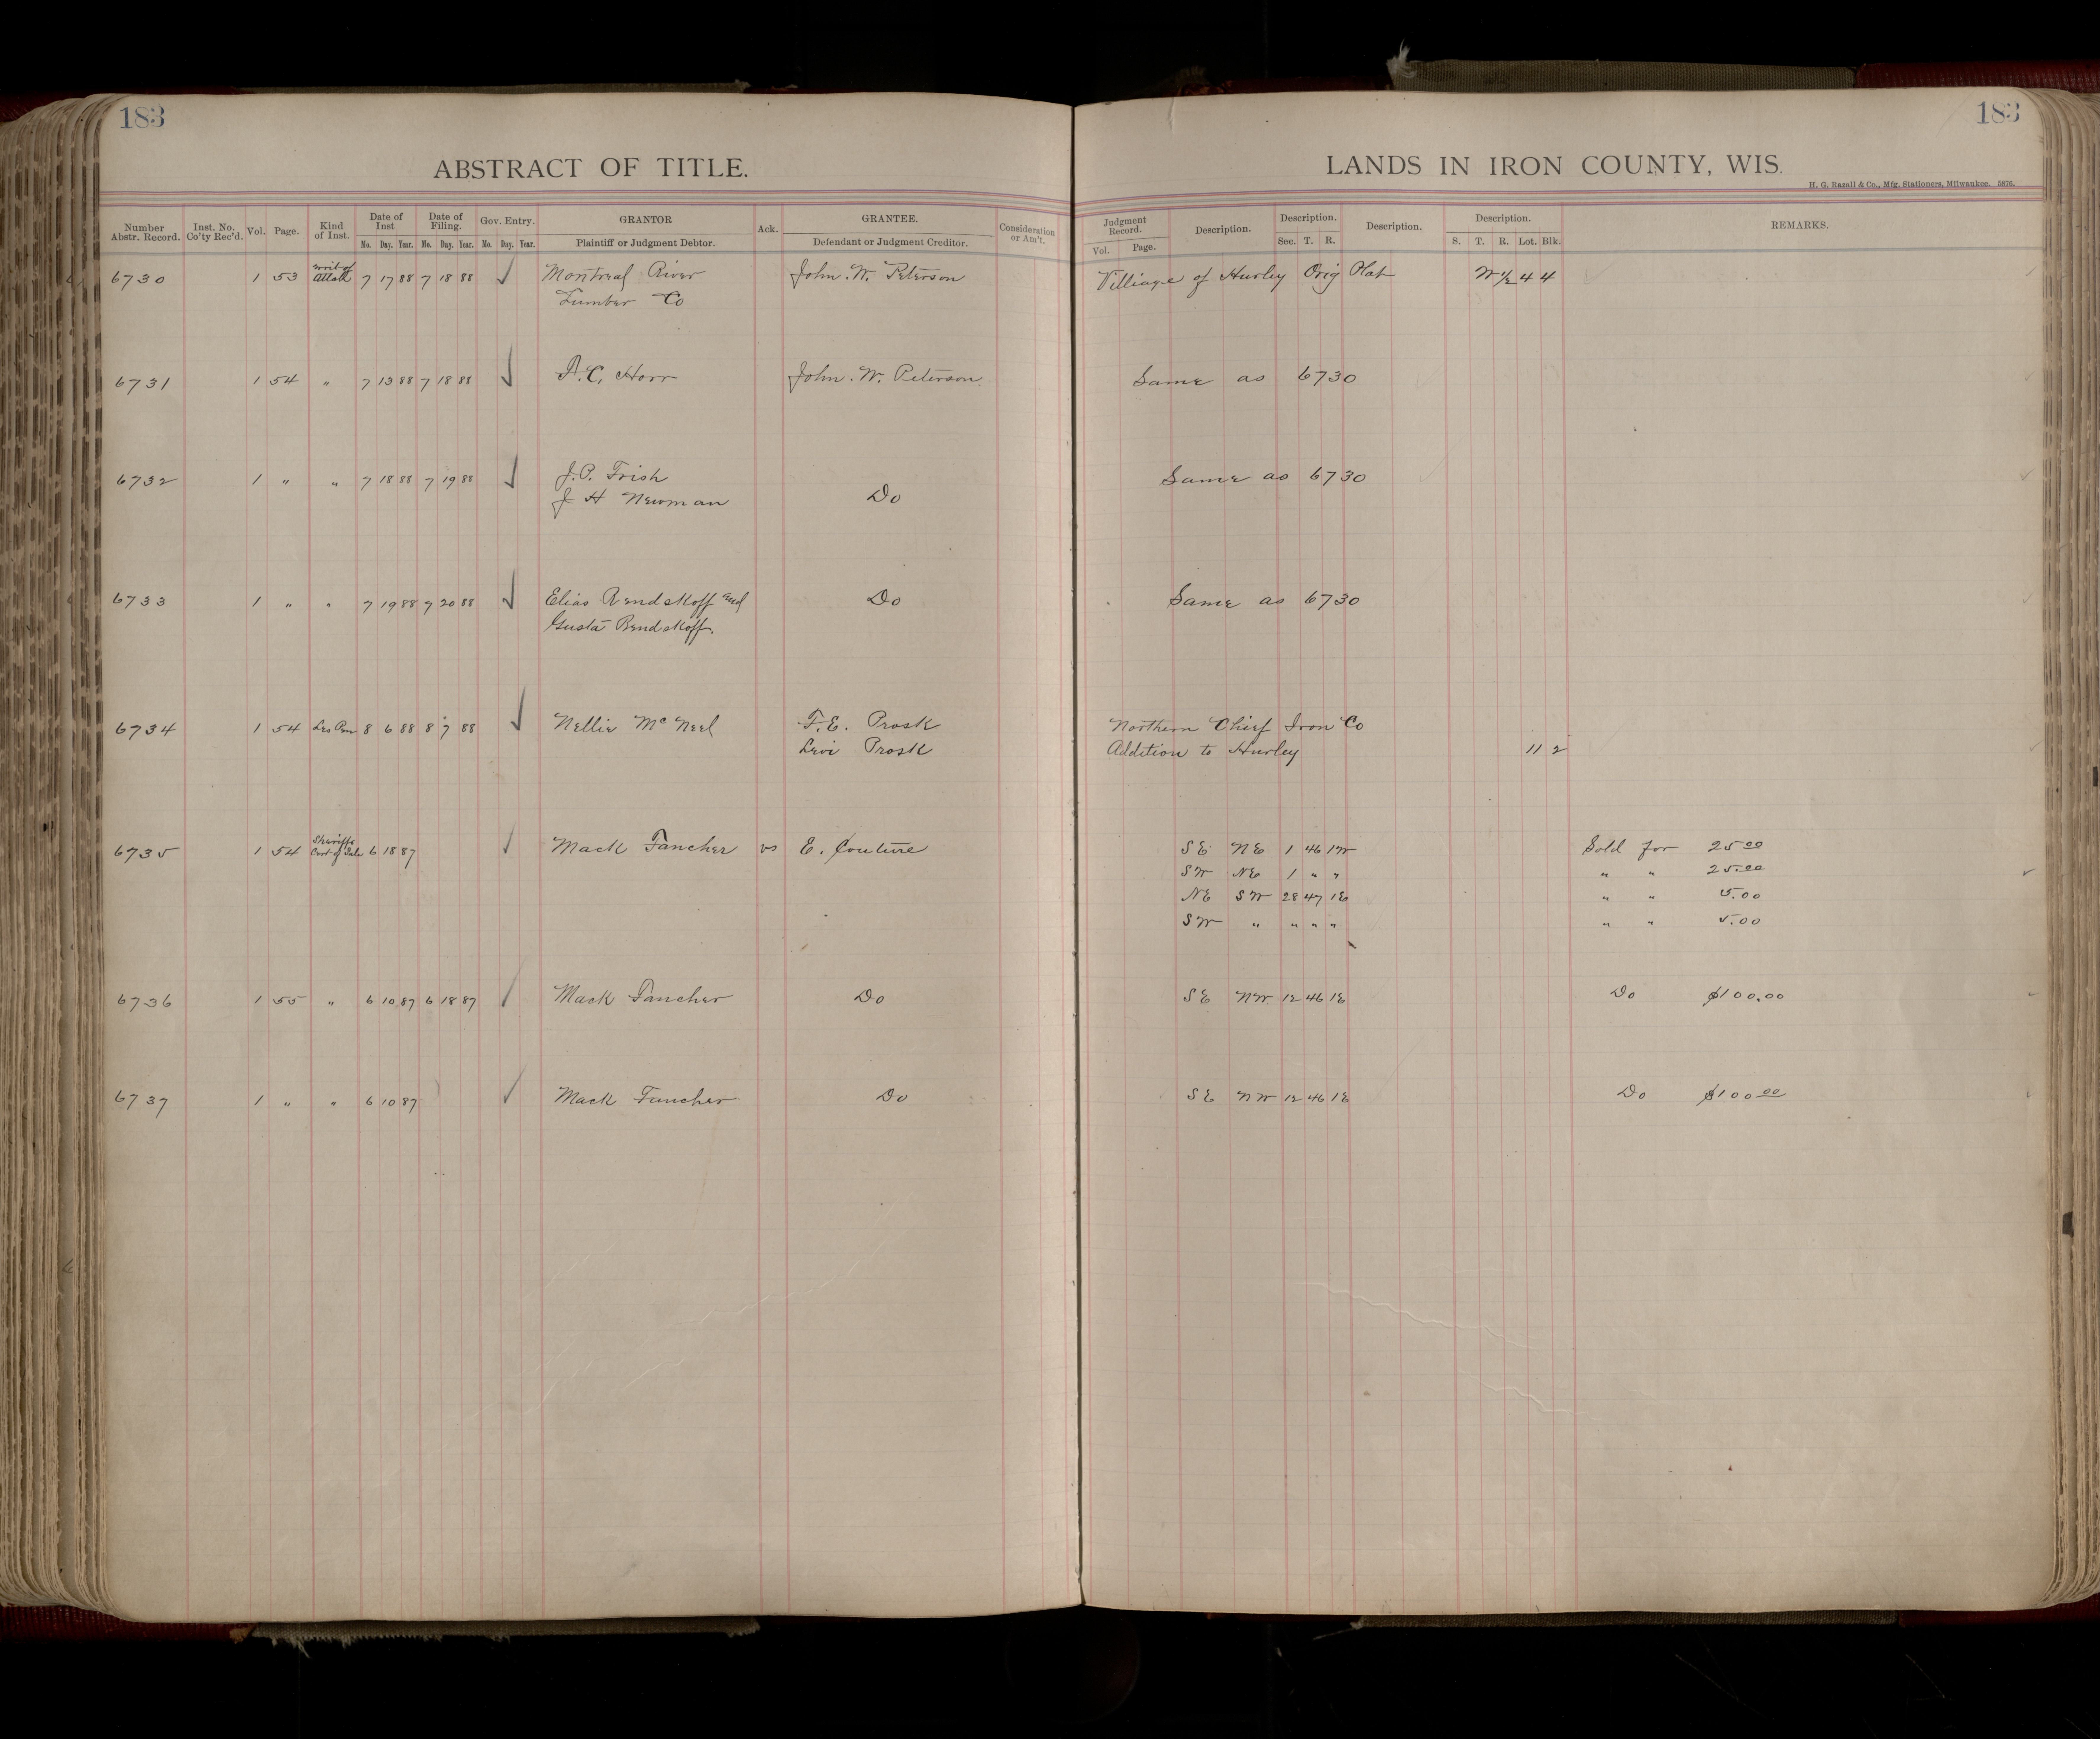 183
183
ABSTRACT OF TITLE.
LANDS IN IRON COUNTY, WIS.
H. G. Razall & Co., Mfg. Stationers, Milwaukee. 5878.
Number Abstr. Record. Inst. No. Co'ty Rec'd. Vol. Page. Kind of Inst. Date of Inst Mo. Day. Year. Date of Filing. Mo. Day. Year. Gov. Entry. Mo. Day. Year. GRANTOR Plaintiff or Judgment Debtor. Ack. GRANTEE. Defendant or Judgment Creditor. Consideration or Am't. Judgment Record. Vol. Page. Description. Description. Sec. T. R. Description. Description. S. T. R. Lot. Blk. REMARKS.
6730 1 53 writ of Attch 7 17 88 7 18 88 Montreal River John. W. Peterson Villiage of Hurley Orig Plat W 1/2 4 4
Lumber Co
6731 1 54 " 7 13 88 7 18 88 P. C. Horr John. W. Peterson. Same as 6730
6732 1 " " 7 18 88 7 19 88 J. P. Trish Same as 6730
J H Newman Do
6733 1 " " 7 19 88 7 20 88 Elias Rendskoff and Do Same as 6730
Gusta Rendskoff.
6734 1 54 Les Pen 8 6 88 8 7 88 Nellie McNeel F. E. Prosk Northern Chief Iron Co
Levi Prosk Addition to Hurley 11 2
6735 1 54 Sheriffs Cert of Sale 6 18 87 Mack Fancher vs E. Couture SE NE 1 46 1W Sold for 25 00
SW NE 1 " " " " 25.00
NE SW 28 47 1E " " 5.00
SW " " " " " " 5.00
6736 1 55 " 6 10 87 6 18 87 Mack Fancher Do SE NW 12 46 1E Do $100.00
6737 1 " " 6 10 87 Mack Fancher Do SE NW 12 46 1E Do $100 00